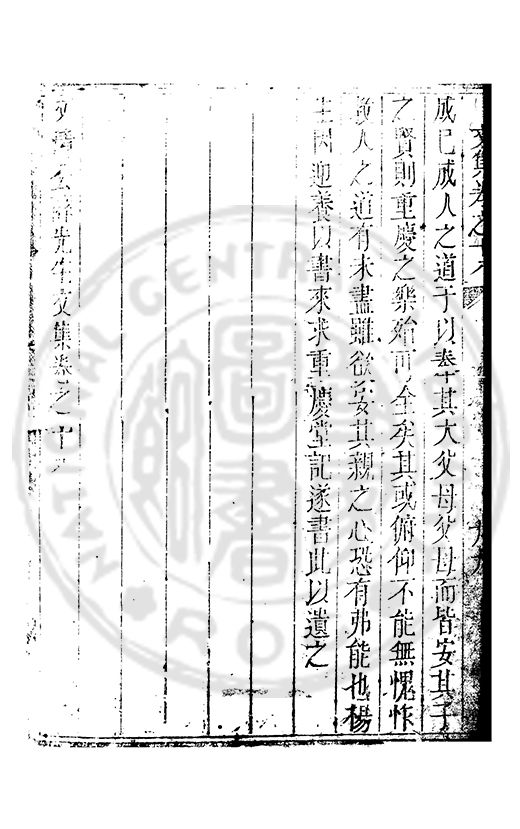 文集卷之十八
成已成人之道于以奉其大父母父母而皆安其子
之賢則重慶之樂殆可全矣其或俯仰不能無愧怍
成人之道有未盡雖欲安其親之心恐有弗能也楊
生因迎養以書來求重慶堂記遂書此以遺之
先生文集卷之十八